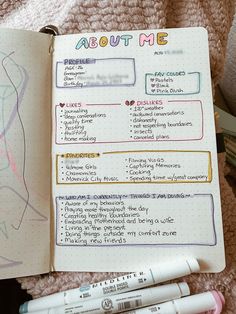 ABOUT ME
PROFILE
Age - 26
Instagram
Birthday
FAV COLORS
Pastels
Black
Pink Blush
LIKES
journaling
deep conversations
quality time
hosting
thrifting
home making
DISLIKES
weather
awkward conversations
dishonesty
not respecting boundaries
insects
canceled plans
FAVORITES
Gilmore Girls
Chamomiles
Maverick City Music
Filming Vlogs
Capturing Memories
Cooking
Spending time w/ company
WHO AM I CURRENTLY - THINGS I AM DOING
Aware of my behaviors
Praying more throughout the day
Creating healthy boundaries
Embracing Motherhood and being a wife
Living in the present
Doing things outside my comfort zone
Making new friends
MILDLINER
DOUBLE ENDED